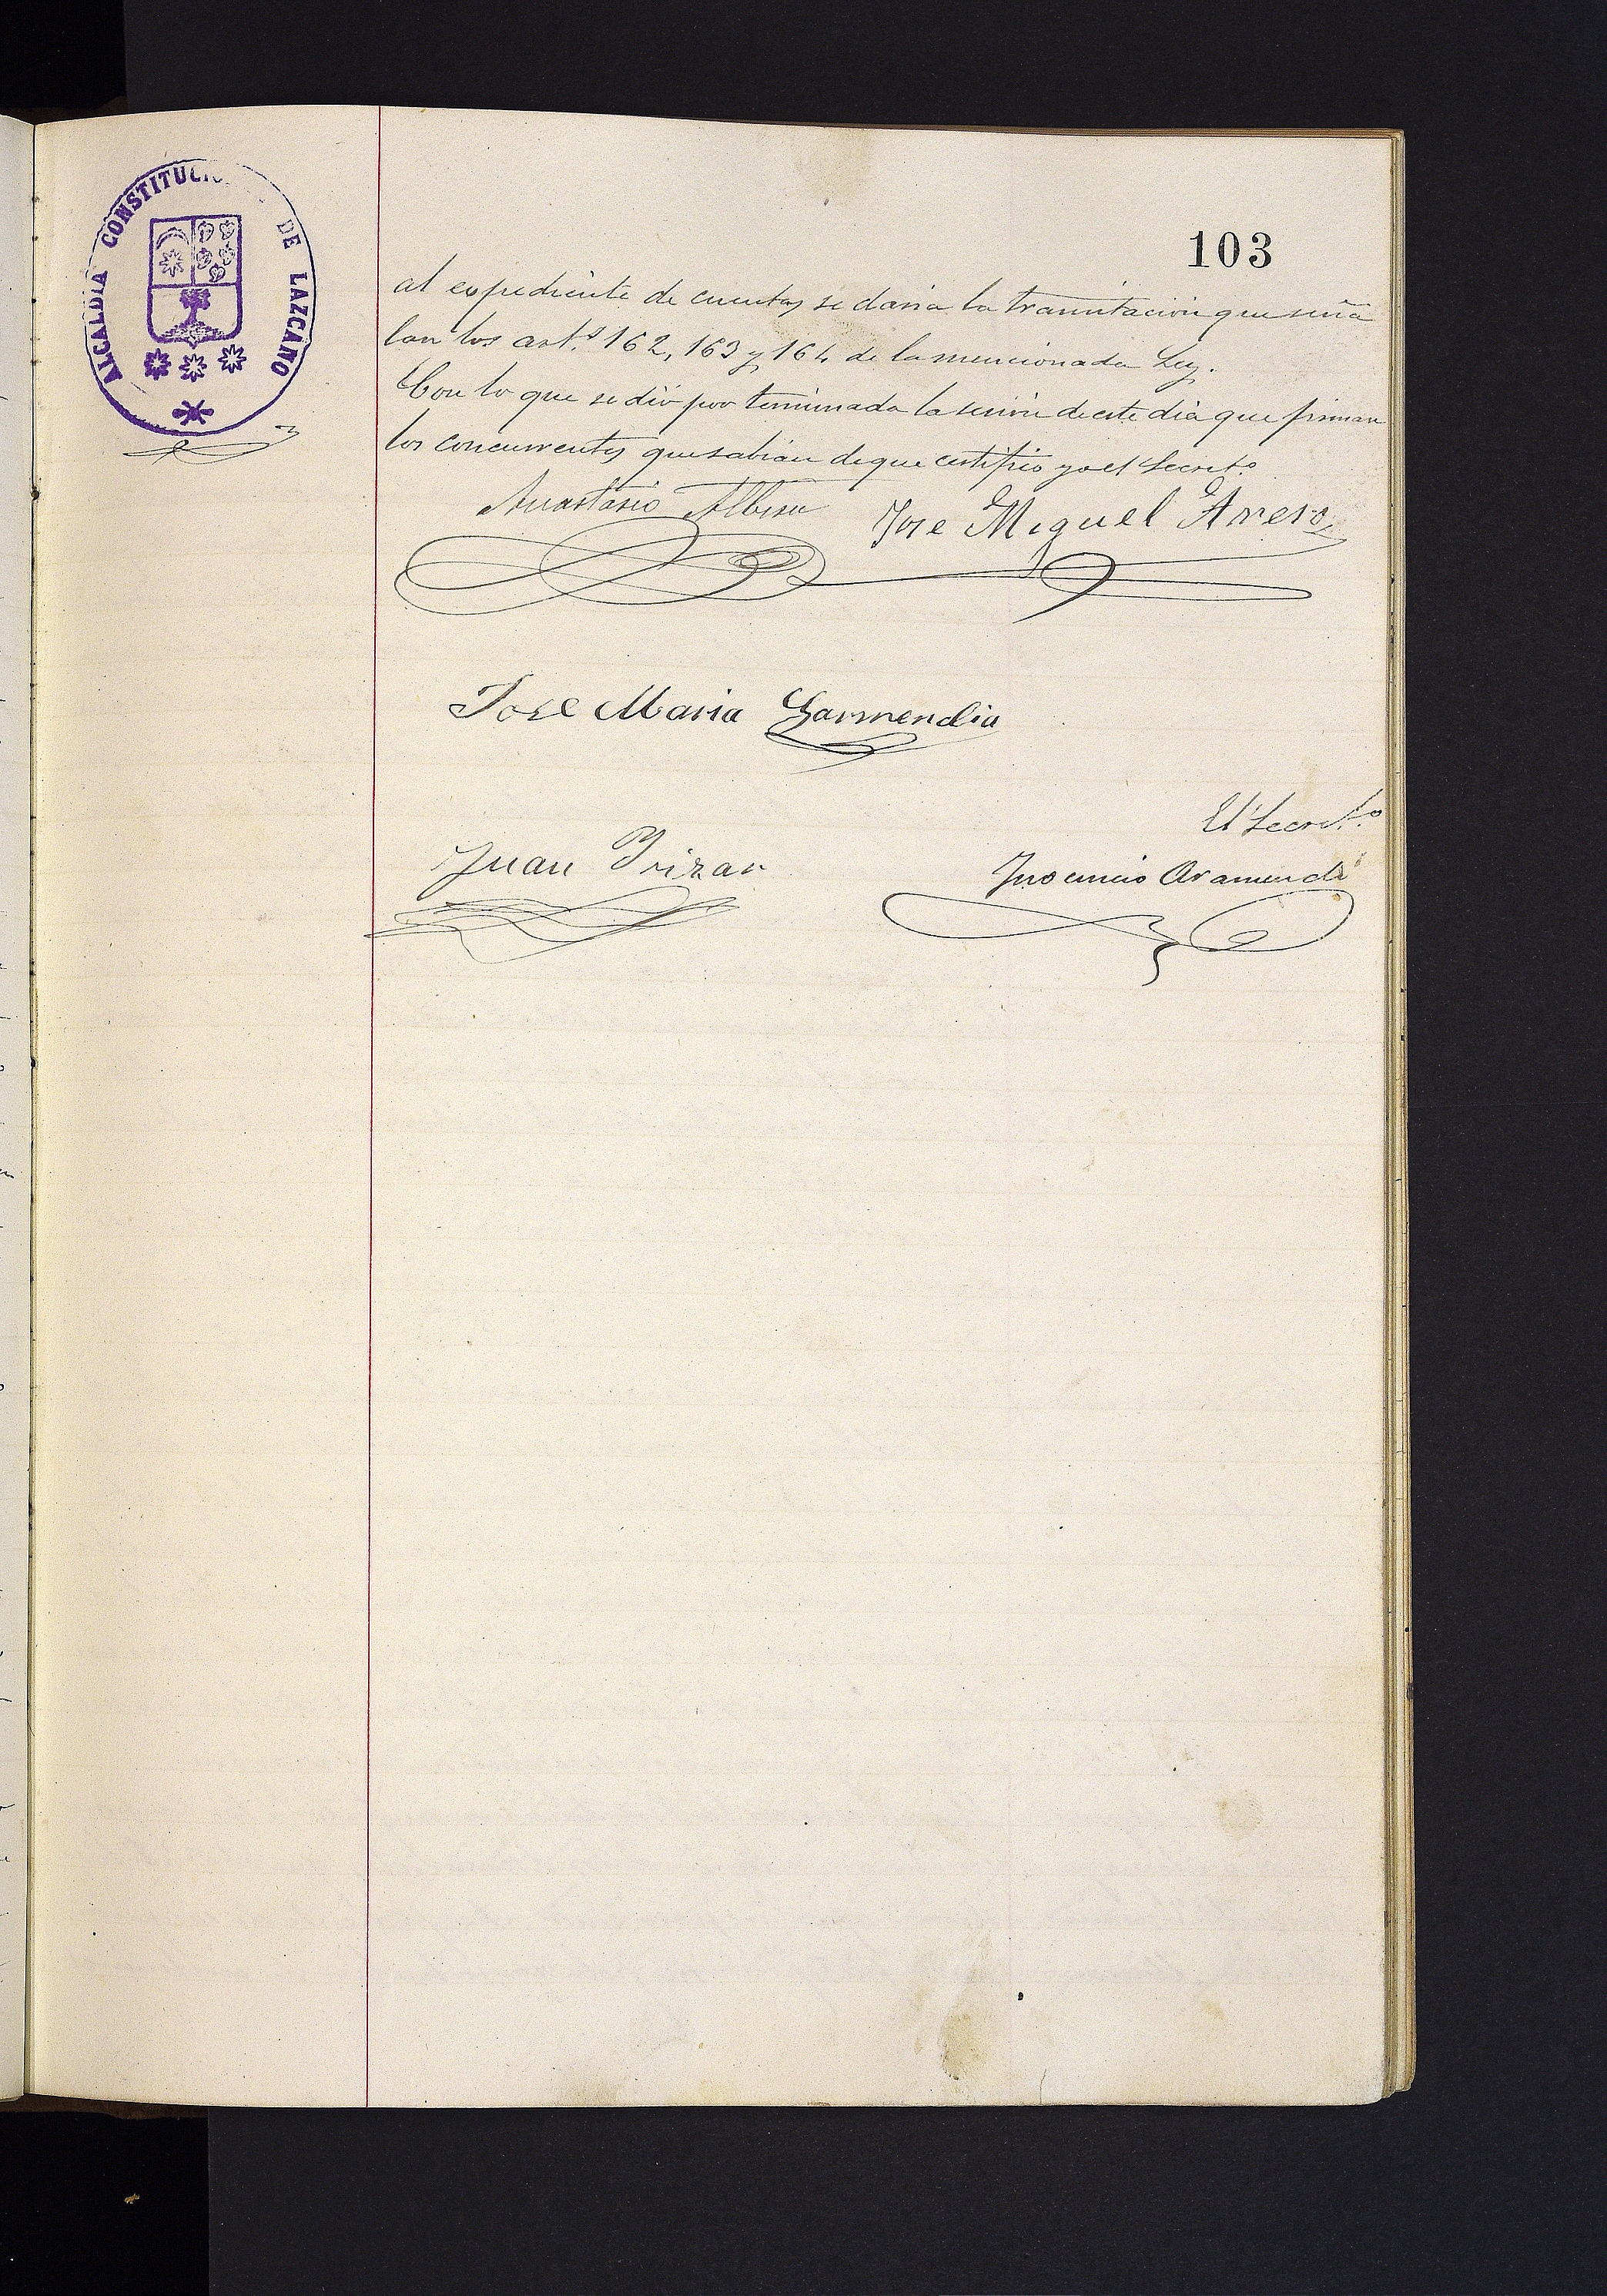 ALCALDIA CONSTITUCI DE LAZCANO
103
al expediente de cuentas se daria la tramitación que seña
lan los art.s 162, 163 y 164 de la mencionada Ley.
Con lo que se dió por terminada la sesión de este dia que firman
los concurrentes que sabian de que certifico yo el Secret.o
Anastasio Albisu
Jose Miguel Arreso
Jose Maria Garmendia
El Secret.o
Juan Irizar
Inocencio Aramendi